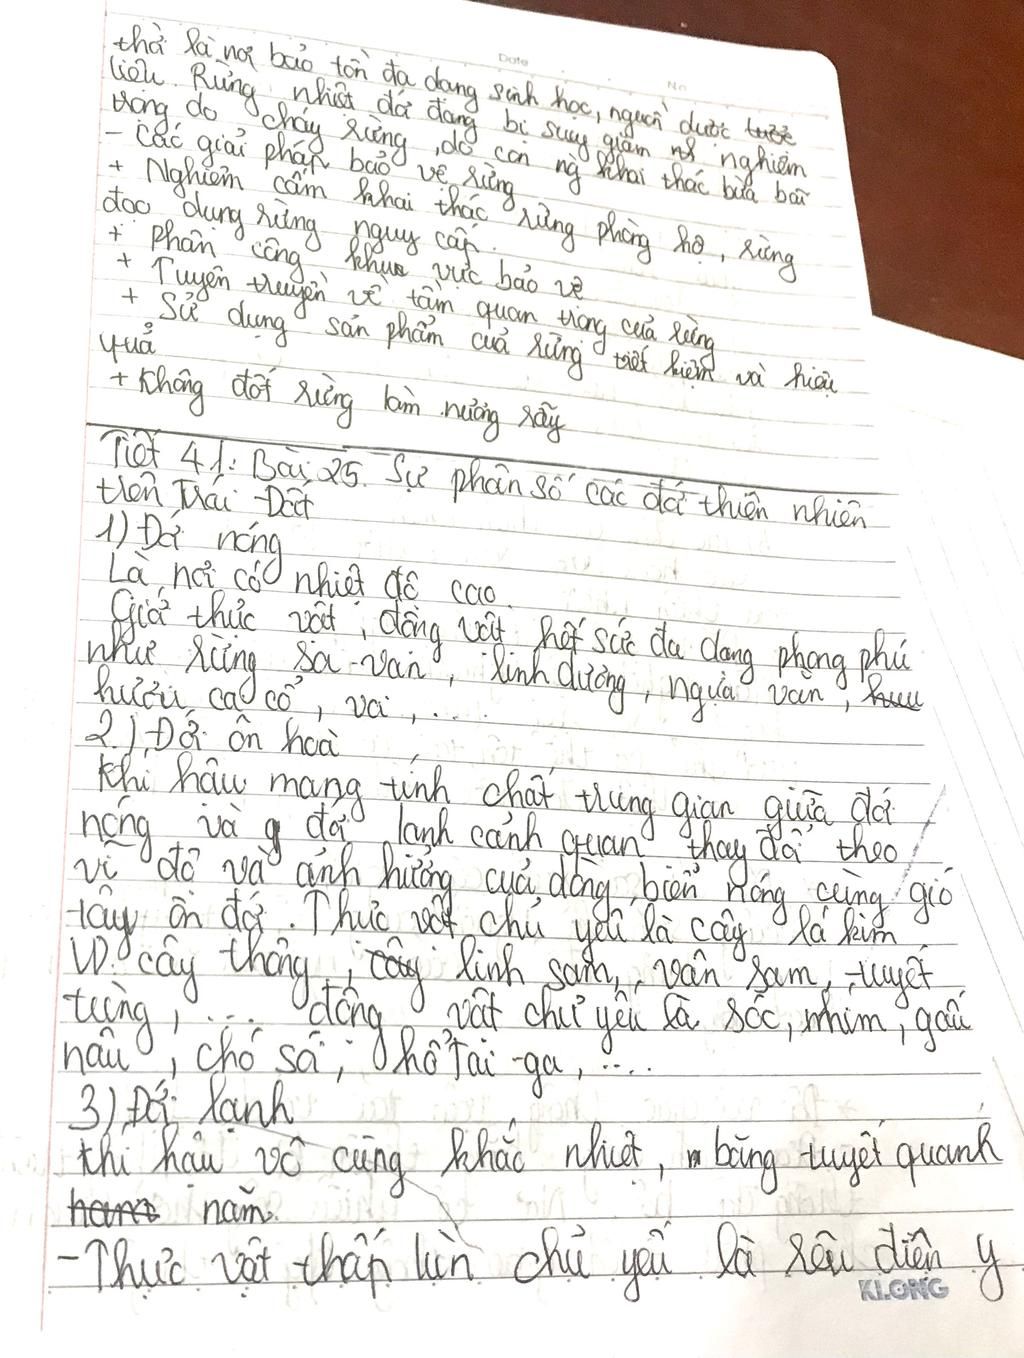 Date
No
thở là nơi bảo tồn đa dạng sinh học, nguồn dược
liệu. Rừng nhiệt đới đang bị suy giảm nghiêm
trọng do cháy rừng, do con ng khai thác bừa bãi
- Các giải pháp bảo vệ rừng
+ Nghiêm cấm khai thác rừng phòng hộ, rừng
đặc dụng rừng nguy cấp.
+ phân công khu vực bảo vệ
+ Tuyên truyền về tầm quan trọng của rừng
+ Sử dụng sản phẩm của rừng tiết kiệm và hiệu
quả
+ Không đốt rừng làm nương rẫy
Tiết 41: Bài 25. Sự phân số các đới thiên nhiên
trên Trái Đất
1) Đới nóng
Là nơi có nhiệt độ cao.
Giới thực vật, động vật hết sức đa dạng phong phú
như rừng sa-van, linh dương, ngựa vằn,
hươu cao cổ, voi,...
2.) Đới ôn hoà
Khí hậu mang tính chất trung gian giữa đới
nóng và đới lạnh cảnh quan thay đổi theo
vĩ độ và ảnh hưởng của dòng biển nóng cùng gió
tây ôn đới. Thực vật chủ yếu là cây lá kim
VD: cây thông, linh sam, vân sam, tuyết
tùng, .... động vật chủ yếu là sóc, nhím, gấu
nâu, chó sói, hổ Tai-ga, ....
3) Đới lạnh
Khí hậu vô cùng khắc nhiệt, băng tuyết quanh
năm.
- Thực vật thấp lùn chủ yếu là rêu, địa y
KLONG